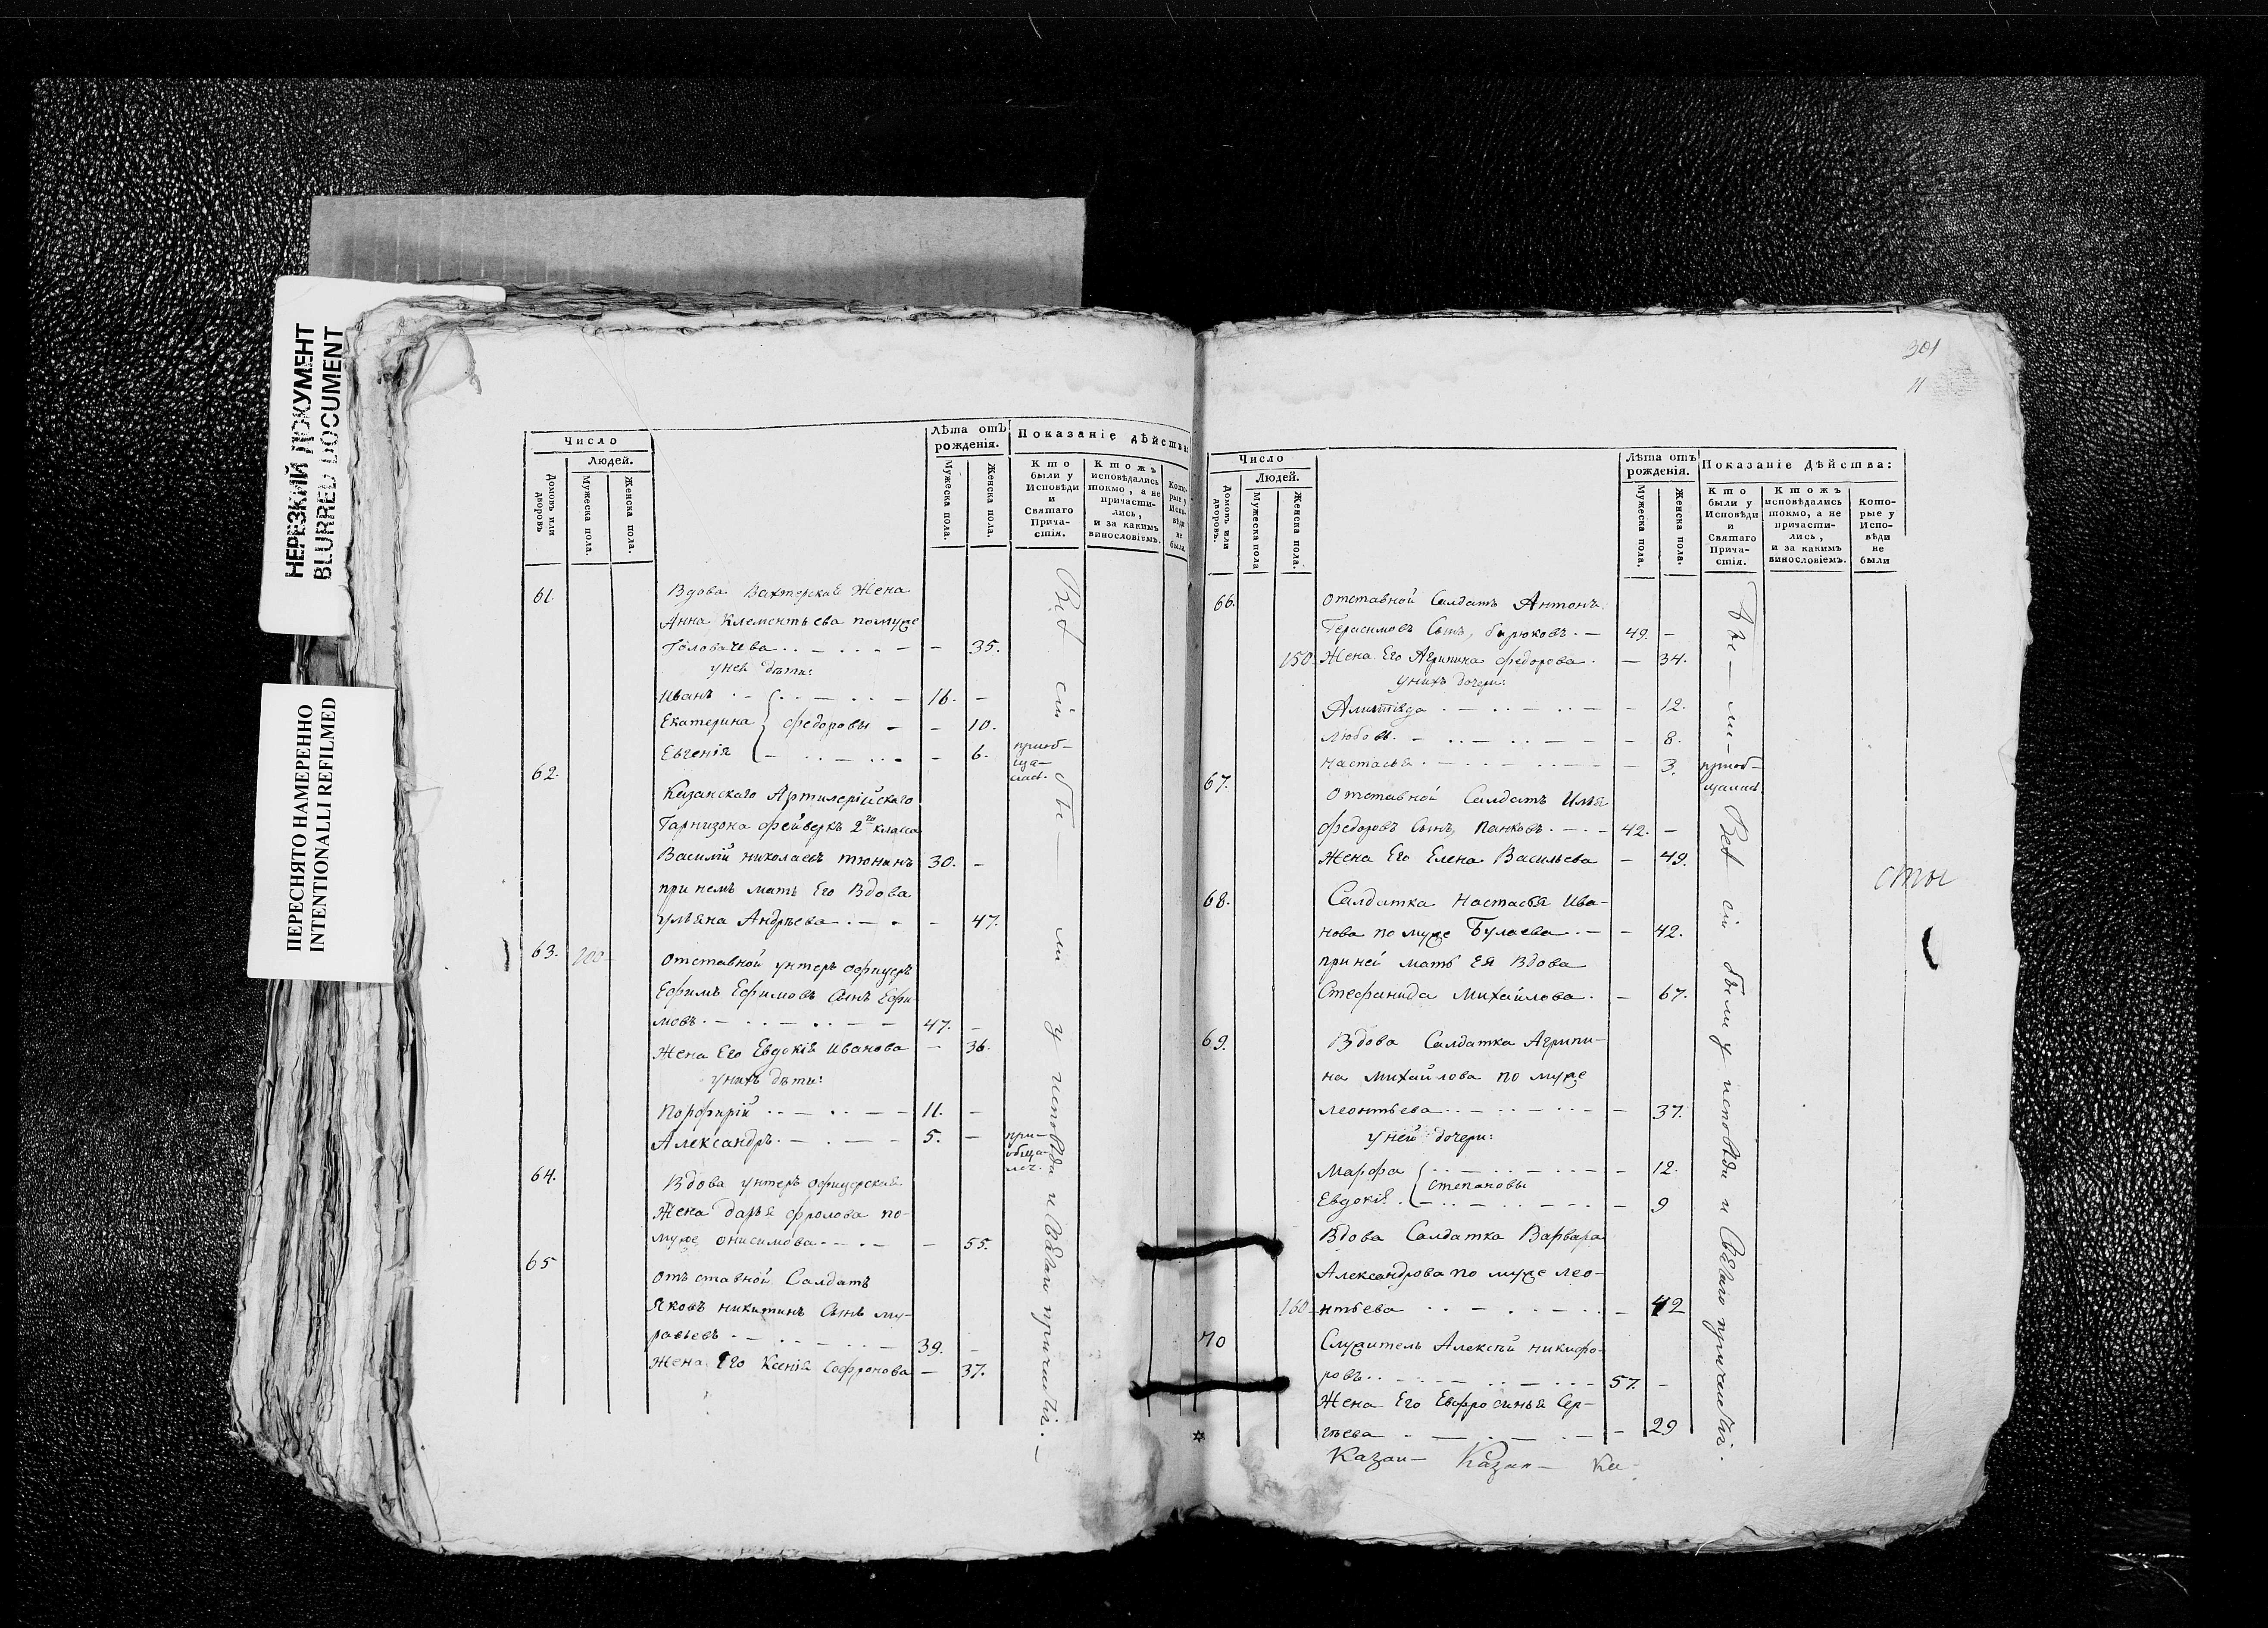 НЕРЕЗКИЙ ДОКУМЕНТ
BLURRED DOCUMENT
ПЕРЕСНЯТО НАМЕРЕННО
INTENTIONALLI REFILMED
Число
Людей.
Домовъ или дворовъ
Мужеска пола.
Женска пола.
Лѣта отъ рожденія.
Мужеска пола.
Женска пола.
Показаніе дѣйства:
Кто были у Исповѣди и Святаго Прича-стія.
Ктожъ исповѣдались токмо, а не причасти-лись, и за какимъ винословіемъ.
Кото-рые у Испо-вѣди не были
61. Вдова Вахтерская Жена
Анна Клементьева по муже
Головачева 35.
у ней дѣти:
Иванъ 16. –
Екатерина Федоровы – 10.
Евгенія – 6. приоб-
ща-
лись.
62.
Казанскаго Артилерійскаго
Гарнизона фейверкъ 2го класа
Василій Николаевъ 30. –
при немъ мать Его Вдова
Ульяна Андрѣева – 47.
63. Отставной унтеръ офицеръ
Ефимъ Ефимовъ Сынъ Ефи-
мовъ 47. –
Жена Его Евдокія Иванова – 36.
у нихъ дѣти:
Порфирій 11. –
Александръ 5. – при-
обща-
64. Вдова унтеръ офицерская
Жена Дарья Фролова по
муже Онисимова – 55.
65
Отъставной Салдатъ
Яковъ Никитинъ Сынъ Му-
равьевъ 39. –
Жена Его Ксенія Софронова – 37.
Всѣ сіи бы – ли у исповѣди и Святаго причастія. –
301
11
Число
Людей.
Домовъ или дворовъ.
Мужеска пола
Женска пола.
Лѣта отъ рожденія.
Мужеска пола.
Женска пола.
Показаніе Дѣйства:
Кто были у Исповѣди и Святаго Прича-стія.
Ктожъ исповѣдались токмо, а не причасти-лись, и за какимъ винословіемъ.
Кото-рые у Испо-вѣди не были
66. Отставной Салдатъ Антонъ
Герасимовъ Сынъ, Бирюковъ. – 49. –
150 Жена Его Агрипина Федорова. – 34.
у нихъ дочери:
– 12.
Любовь – 8.
Настасья – 3. приоб-
щались
67.
Отставной Салдатъ Илья
Федоровъ Сынъ, Панковъ 42. –
Жена Его Елена Васильева – 49.
68. Салдатка Настасья Ива-
нова по муже Булаева – 42.
при ней мать Ея Вдова
Стефанида Михайлова. – 67.
69. Вдова Салдатка Агрипи-
на Михайлова по муже
Леонтьева – 37.
у ней дочери:
Марфа – 12.
Степановы
Евдокія – 9
Вдова Салдатка Варвара
Александрова по муже Лео-
160 нтьева – 42
70 Служитель Алексѣй Никифо-
ровъ 57. –
Жена Его Евфросинья Сер-
гѣева – 29
Всѣ сіи были у исповѣди и Святаго причастія.
сты
Казан– Казан– Ка